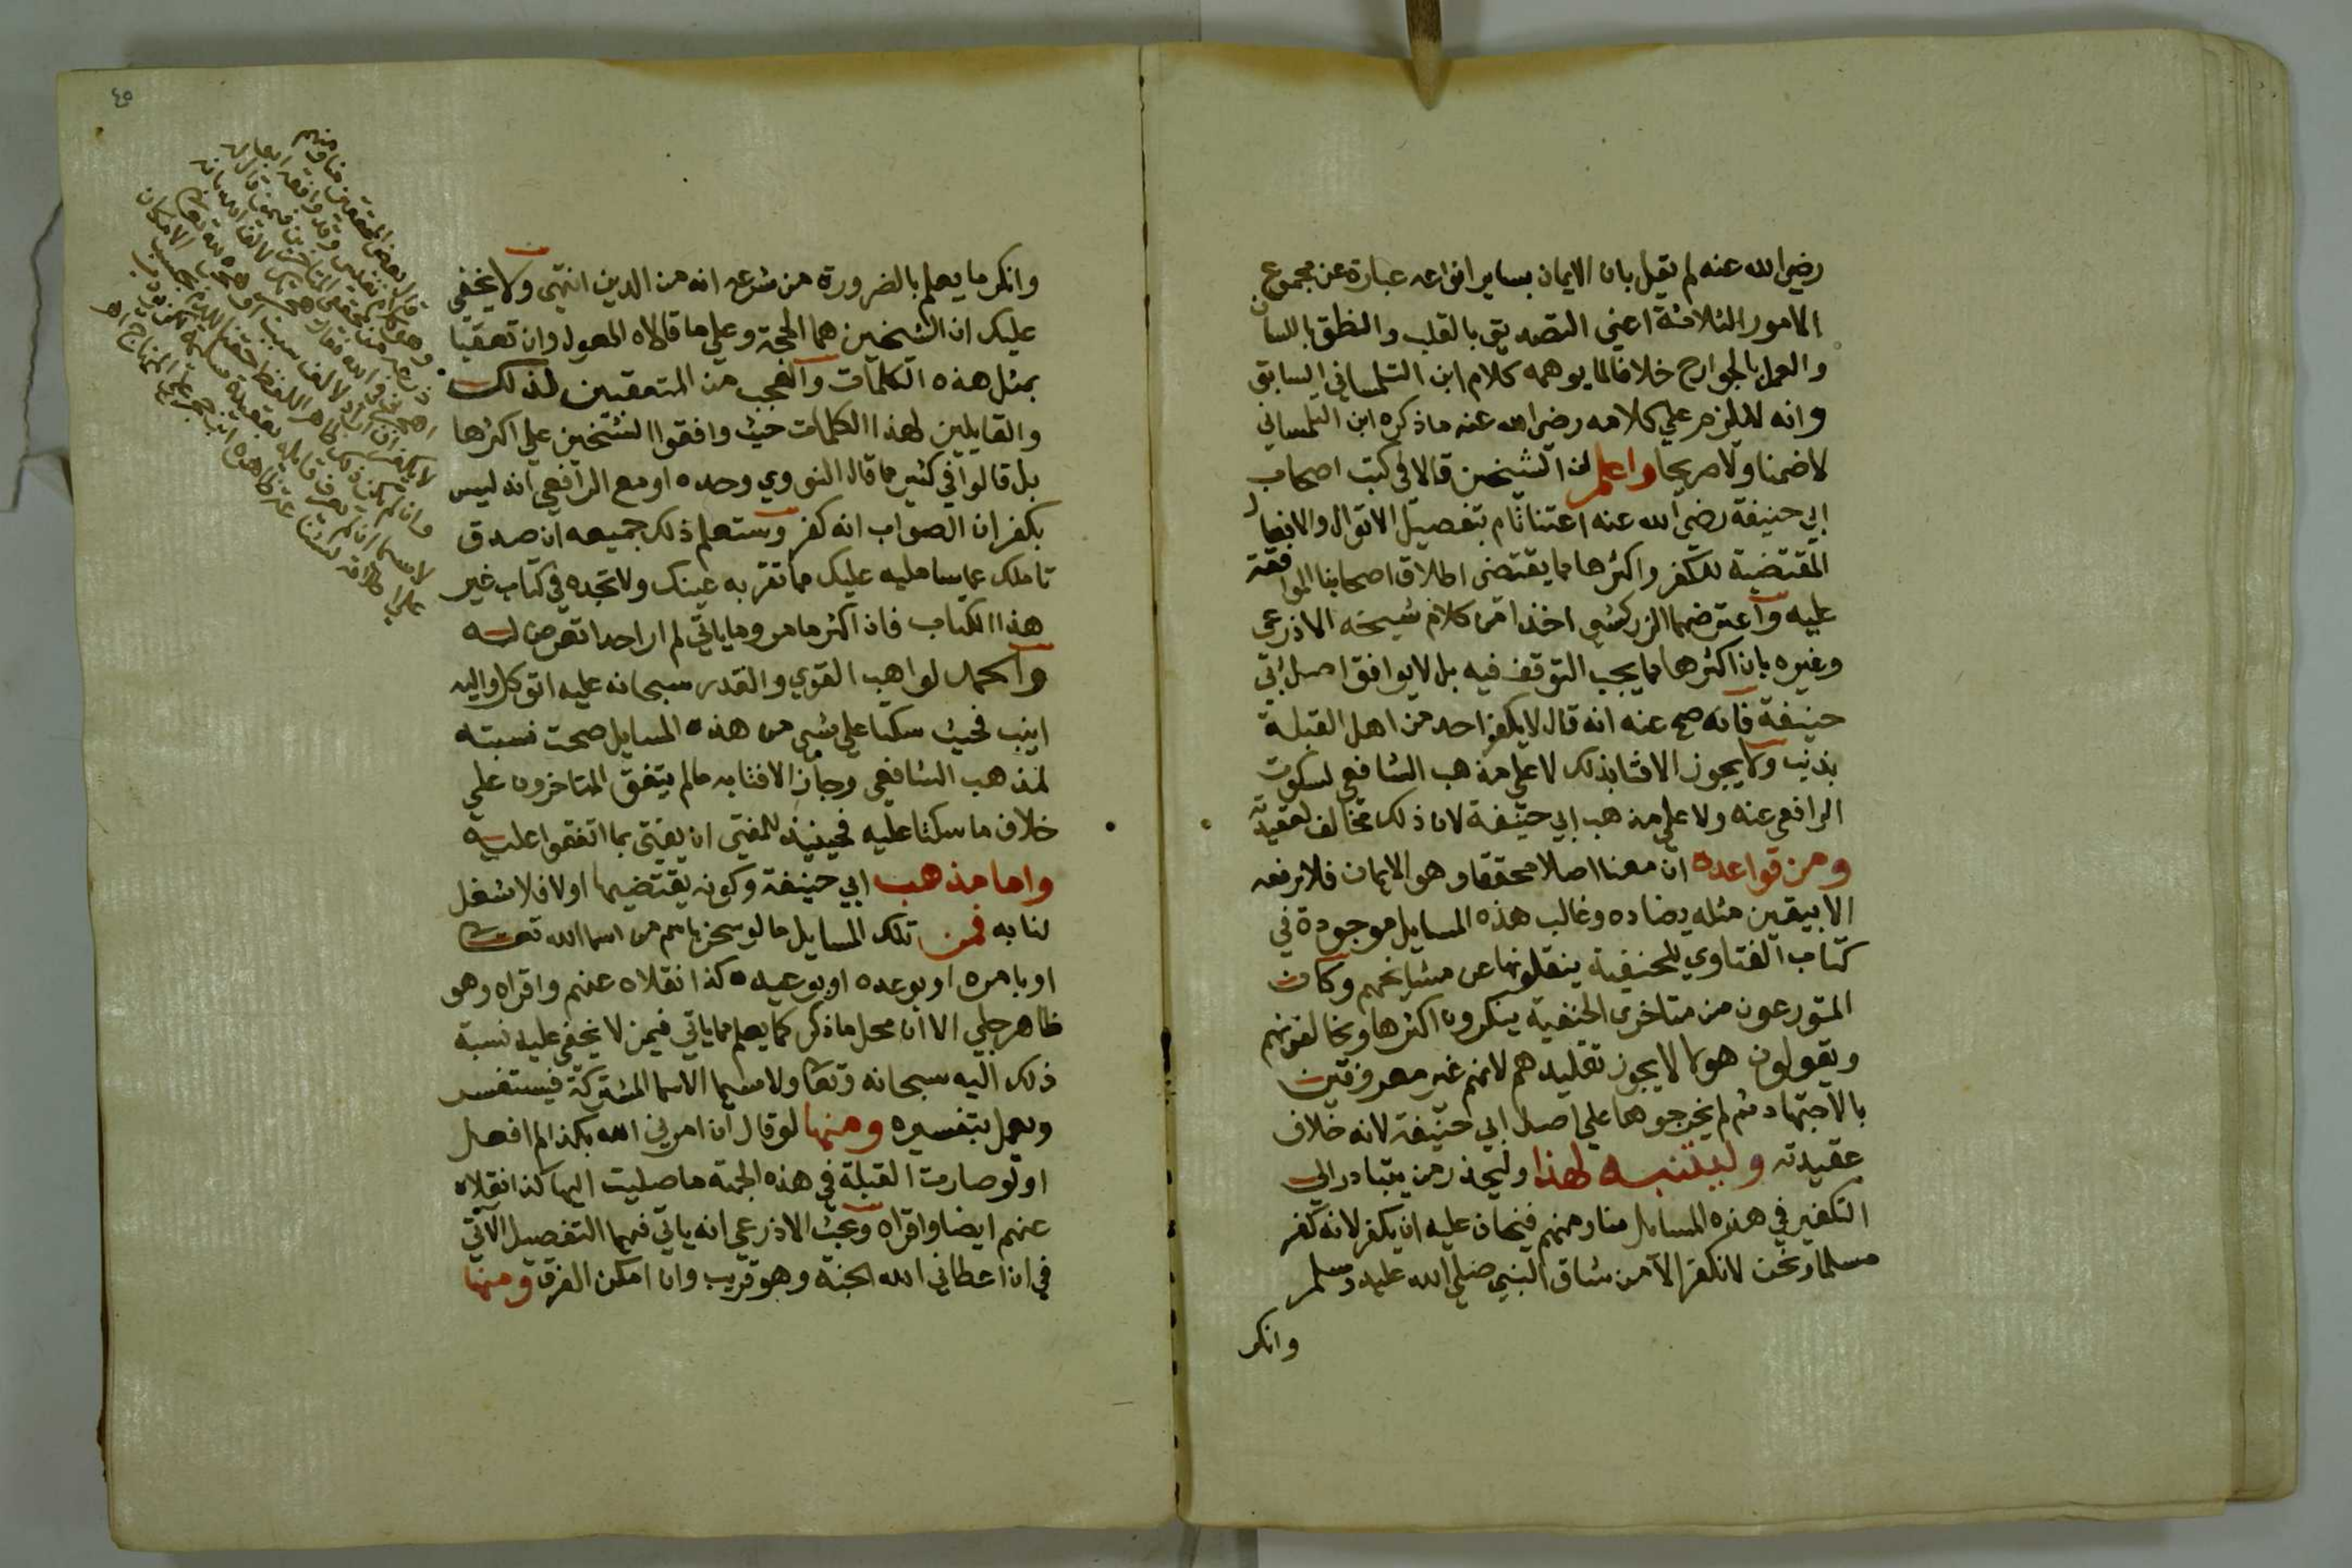 رضي الله عنه لم يقل بان الايمان بساير انواعه عبارة عن مجموع
الامور الثلاثة اعني التصديق بالقلب والنطق باللسان
والعمل بالجوارح خلافا لما يوهمه كلام ابن التلمساني السابق
وانه لا يلزم علي كلامه رضي الله عنه ما ذكره ابن التلمساني
لا ضمنا ولا صريحا واعلم ان الشيخين قالا في كتب اصحاب
ابي حنيفة رضي الله عنه اعتنا تام بتفصيل الاقوال والافعال
المقتضية للكفر واكثرها مما يقتضي اطلاق اصحابنا الموافقة
عليه واعترضهما الزركشي اخذا من كلام شيخه الاذرعي
وغيره بان اكثرها مما يجب التوقف فيه بل لا يوافق اصل ابي
حنيفة فانه صح عنه انه قال لا يكفر احد من اهل القبلة
بذنب ولا يجوز الافتا بذلك لا علي مذهب الشافعي لسكوت
الرافعي عنه ولا علي مذهب ابي حنيفة لان ذلك مخالف لعقيدته
ومن قواعده ان معنا اصلا محققا وهو الايمان فلا نرفعه
الا بيقين مثله يضاده وغالب هذه المسايل موجودة في
كتاب الفتاوي للحنفية ينقلونها عن مشايخهم وكان
المتورعون من متاخري الحنفية ينكرون اكثرها ويخالفونهم
ويقولون هولا لا يجوز تقليدهم لانهم غير معروفين
بالاجتهاد ثم لم يخرجوها علي اصل ابي حنيفة لانه خلاف
عقيدته وليتنبه لهذا وليحذر من يتبادر الي
التكفير في هذه المسايل منا ومنهم فيخاف عليه ان يكفر لانه كفر
مسلما ونحن لا نكفر الا من شاق النبي صلي الله عليه وسلم
وانكر
٤٥
وانكر ما يعلم بالضرورة من شرعه انه من الدين انتهي ولا يخفي
عليك ان الشيخين هما الحجة وعلي ما قالاه المعول وان تعقبا
بمثل هذه الكلمات والعجب من المتعقبين لذلك
والقايلين لهذا الكلمات حيث وافقوا الشيخين علي اكثرها
بل قالوا في كثير مما قال النووي وحده او مع الرافعي انه ليس
بكفر ان الصواب انه كفر وستعلم ذلك جميعه ان صدق
تاملك عما سامليه عليك مما تقر به عينك ولا تجده في كتاب غير
هذا الكتاب فان اكثر ما مر وما ياتي لم ار احدا تعرض له
والحمد لواهب القوي والقدر سبحانه عليه اتوكل واليه
انيب فحيث سكتا علي شي من هذه المسايل صحت نسبته
لمذهب الشافعي وجاز الافتا به ما لم يتفق المتاخرون علي
خلاف ما سكتا عليه فحينيذ للمفتي ان يفتي بما اتفقوا عليه
واما مذهب ابي حنيفة وكونه يقتضيها اولا فلا شغل
لنا به فمن تلك المسايل ما لو سخر باسم من اسما الله تعالي
او بامره او بوعده او بوعيده كذا نقلاه عنهم واقراه وهو
ظاهر جلي الا ان محل ما ذكر كما يعلم مما ياتي فيمن لا يخفي عليه نسبة
ذلك اليه سبحانه وتعا ولا سيما الاسما المشتركة فيستفسر
ويعمل بتفسيره ومنها لو قال ان امرني الله بكذا لم افعل
او لو صارت القبلة في هذه الجهة ما صليت اليها كذا نقلاه
عنهم ايضا واقراه وبحث الاذرعي انه ياتي فيهما التفصيل الاتي
في ان اعطاني الله الجنة وهو قريب وان امكن الفرق ومنها